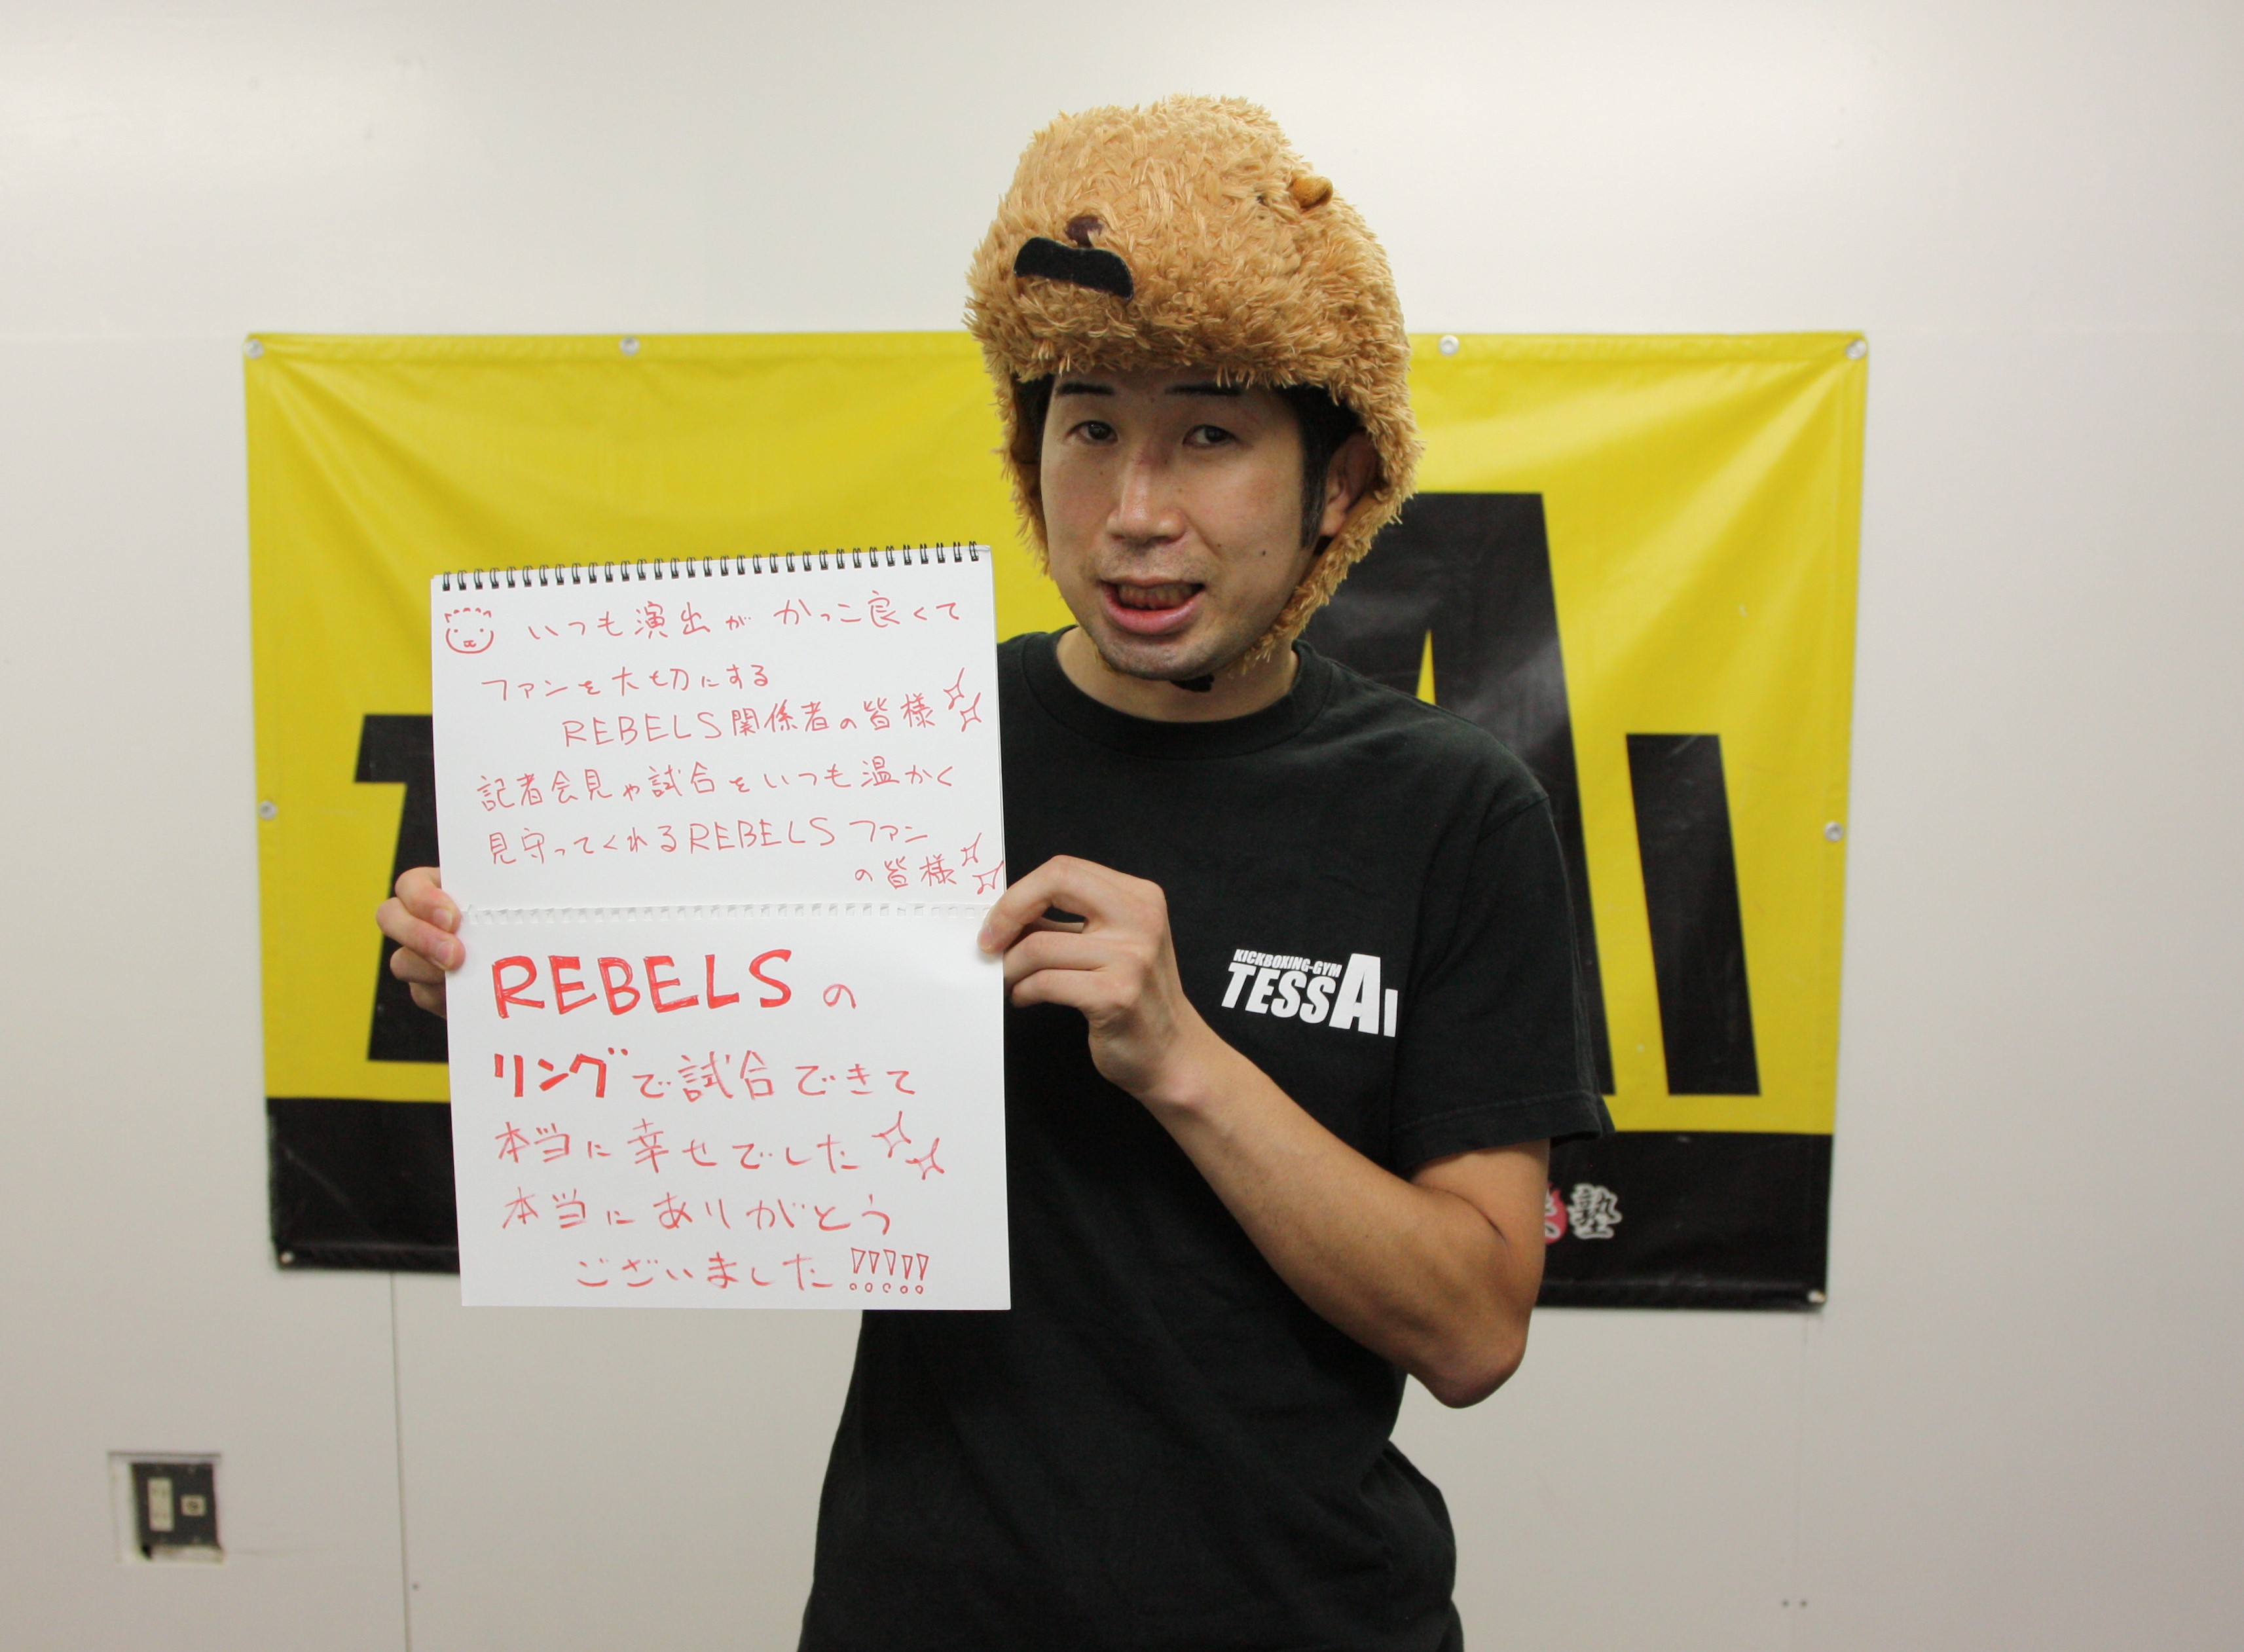 いつも演出が かっこ良くて
ファンを大切にする
REBELS関係者の皆様
記者会見や試合をいつも温かく
見守ってくれるREBELSファン
の皆様
REBELSの
リングで試合できて
本当に幸せでした
本当にありがとう
ございました!!!!!
KICKBOXING-GYM
TESSAI
AI
塾